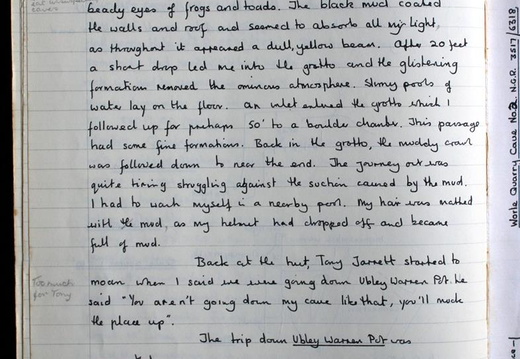 beady eyes of frogs and toads. The black mud coated
the walls and roof and seemed to absorb all my light,
as throughout it appeared a dull, yellow beam. After 20 feet
a short drop led me into the grotto and the glistening
formations removed the ominous atmosphere. Slimy pools of
water lay on the floor. An inlet entered the grotto which I
followed up for perhaps 50' to a boulder chamber. This passage
had some fine formations. Back in the grotto, the muddy crawl
was followed down to near the end. The journey out was
quite tiring struggling against the suction caused by the mud.
I had to wash myself in a nearby pool. My hair was matted
with the mud, as my helmet had dropped off and became
full of mud.
Back at the hut, Tony Jarrett started to
moan when I said we were going down Ubley Warren Pot. He
said "You aren't going down my cave like that, you'll muck
the place up".
The trip down Ubley Warren Pot was
Too much
for Tony
Worle Quarry Cave No2 N.G.R. 3517/6318